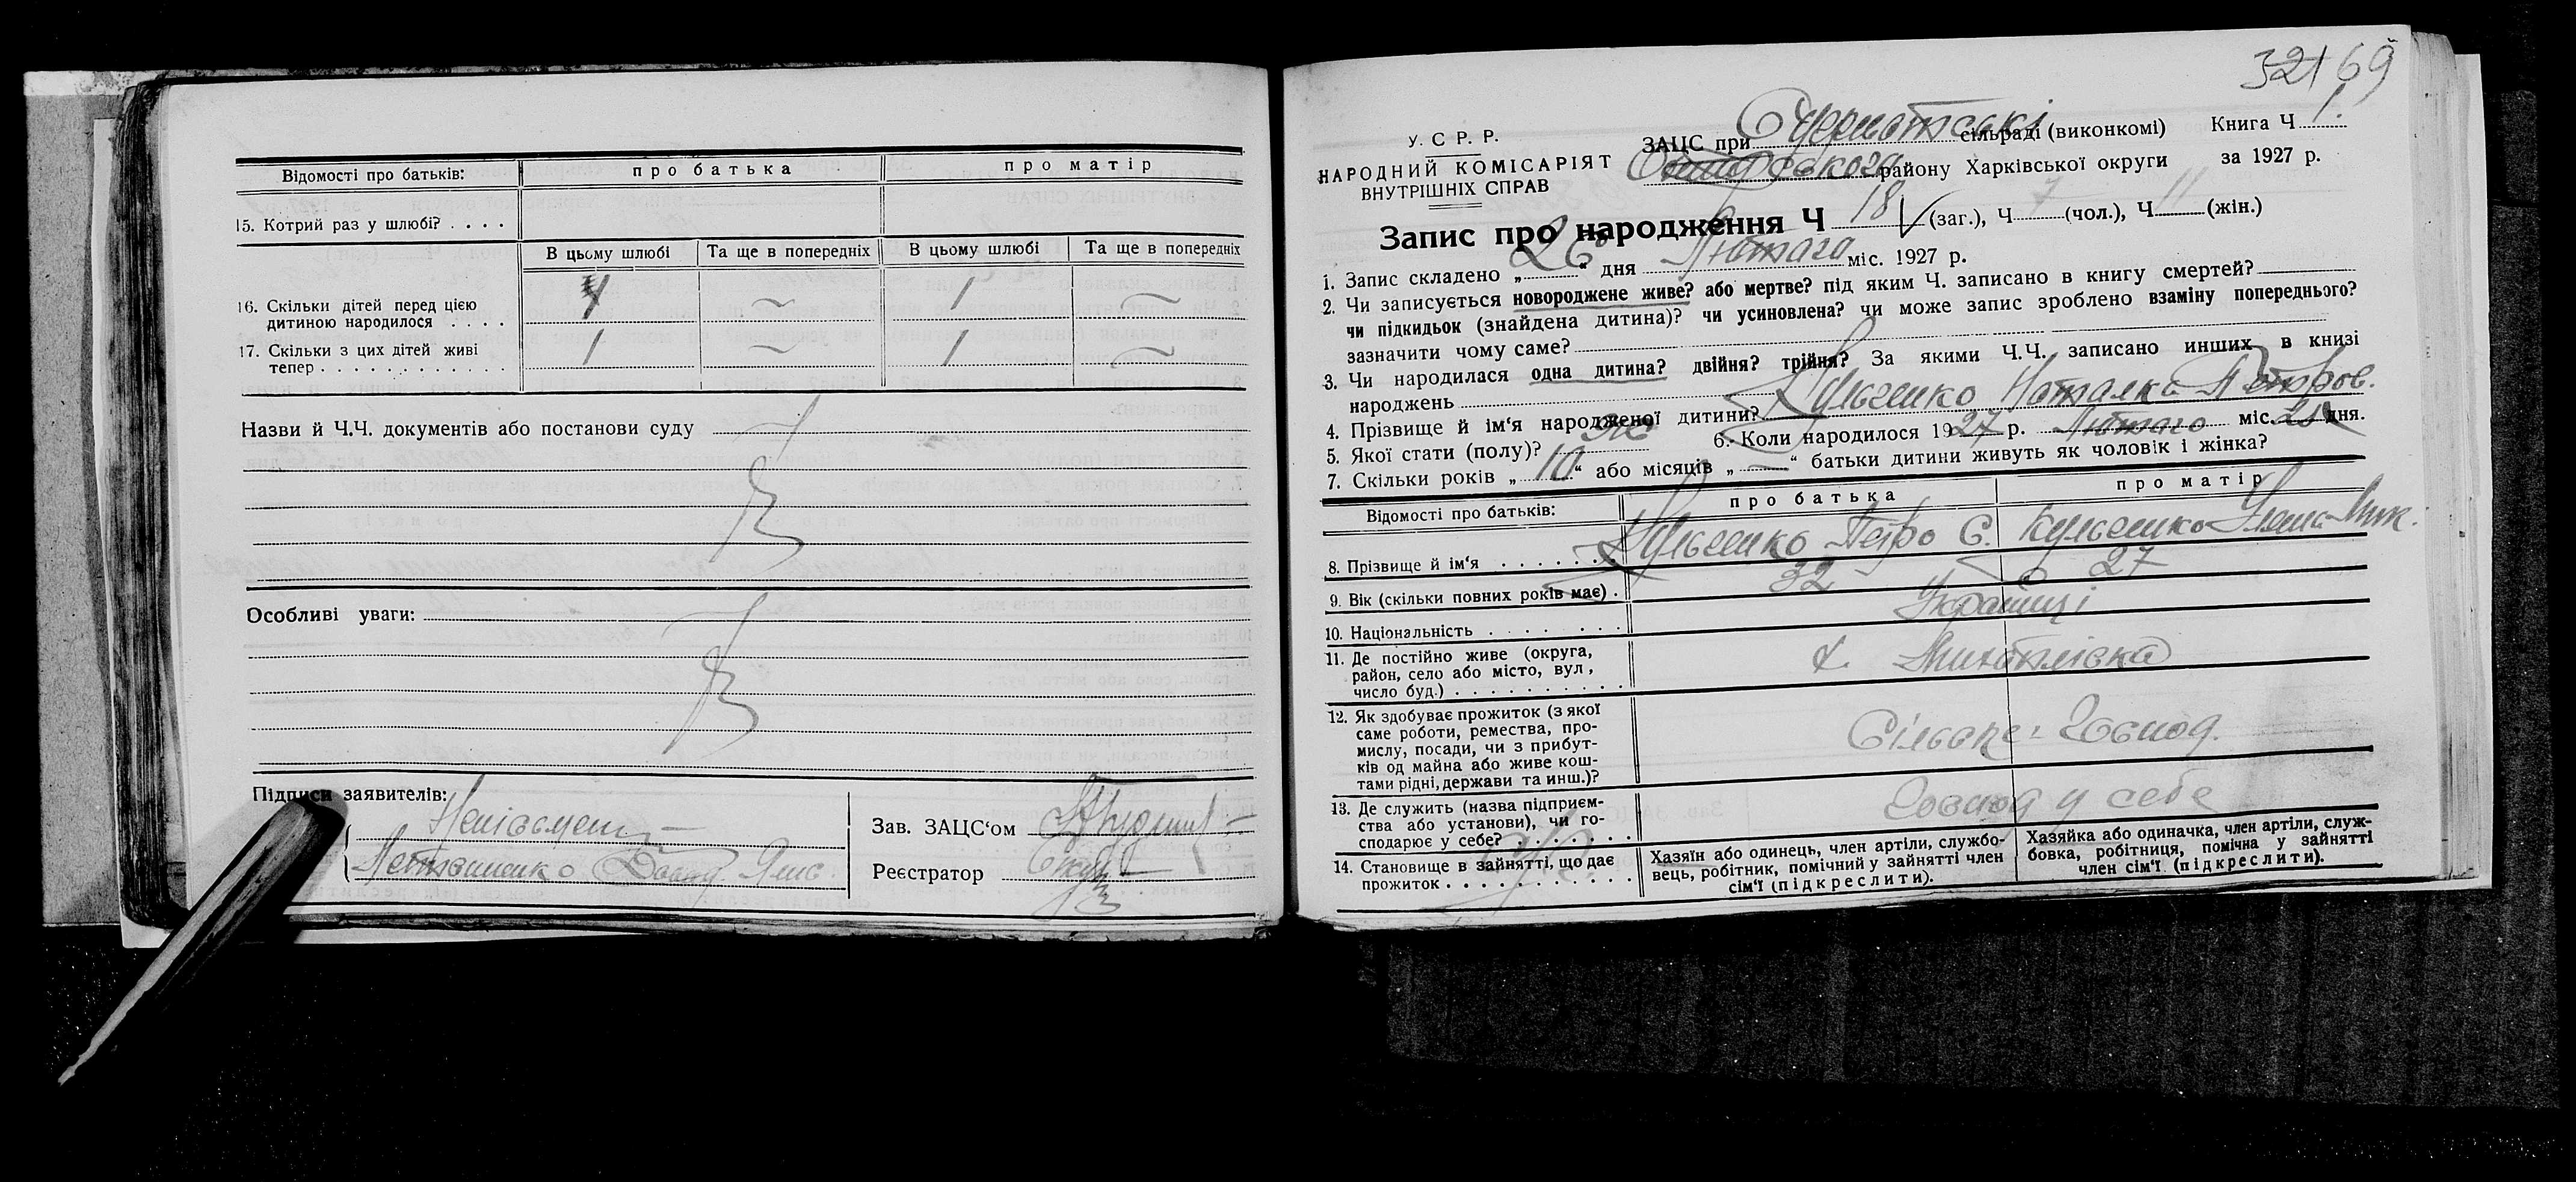 Відомості про батьків: про батька про матір
15. Котрий раз у шлюбі? . . . .
В цьому шлюбі Та ще в попередніх В цьому шлюбі Та ще в попередніх
16. Скільки дітей перед цією
дитиною народилося . . . . 1 ~ 1 ~
17. Скільки з цих дітей живі
тепер . . . . . . . . . . . . 1 ~ 1 ~
Назви й Ч.Ч. документів або постанови суду
Особливі уваги:
Підписи заявителів:
Зав. ЗАЦС‘ом
Реєстратор
32169
У. С. Р. Р.
НАРОДНИЙ КОМІСАРІЯТ
ВНУТРІШНІХ СПРАВ
ЗАЦС при сільраді (виконкомі) Книга Ч 1.
району Харківської округи за 1927 р.
Запис про народження Ч 18 (заг.), Ч 7 (чол.), Ч 11 (жін.)
1. Запис складено „26“ дня Лютого міс. 1927 р.
2. Чи записується новороджене живе? або мертве? під яким Ч. записано в книгу смертей?
чи підкидьок (знайдена дитина)? чи усиновлена? чи може запис зроблено взаміну попереднього?
зазначити чому саме?
3. Чи народилася одна дитина? двійня? трійня? За якими Ч.Ч. записано инших в книзі
народжень
4. Прізвище й ім‘я народженої дитини? Кульченко Наталка Петров.
5. Якої стати (полу)? Жі 6. Коли народилося 1927 р. Лютаго міс. дня.
7. Скільки років „10“ або місяців „—“ батьки дитини живуть як чоловік і жінка?
Відомості про батьків: про батька про матір
8. Прізвище й ім‘я . . . . . . . Кульченко Петро С. Кульченко
9. Вік (скільки повних років має) . 32 27
10. Національність . . . . . . . Українці
11. Де постійно живе (округа,
район, село або місто, вул,
число буд.) . . . . . . . . . .
12. Як здобуває прожиток (з якої
саме роботи, ремества, про-
мислу, посади, чи з прибут-
ків од майна або живе кош-
тами рідні, держави та инш.)? Сільске Господ.
13. Де служить (назва підприєм-
ства або установи), чи го-
сподарює у себе? . . . . . . Господ у себе
14. Становище в зайнятті, що дає
прожиток . . . . . . . . . . .
Хазяїн або одинець, член артіли, службо-
вець, робітник, помічний у зайнятті член
сім‘ї (підкреслити).
Хазяйка або одиначка, член артіли, служ-
бовка, робітниця, помічна у зайнятті
член сім‘ї (підкреслити).